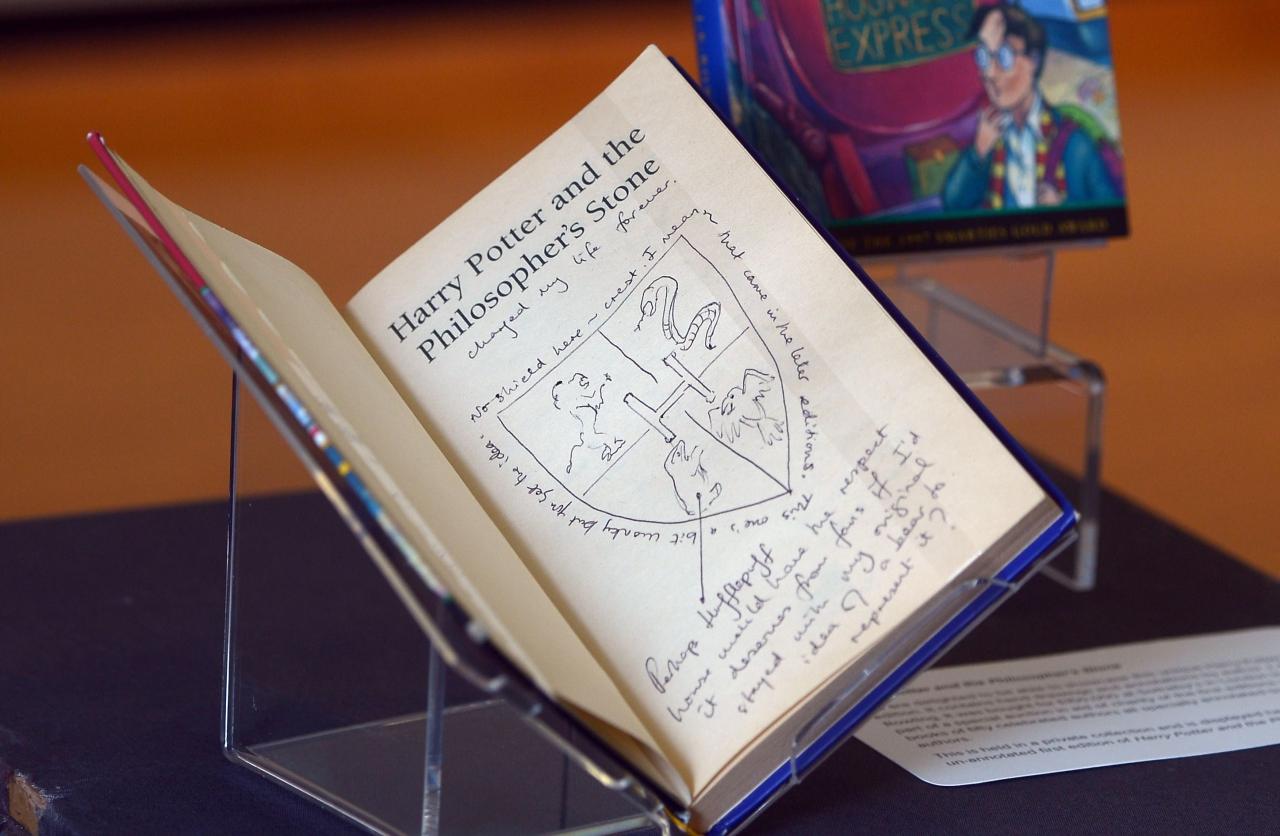 HOGWARTS
EXPRESS
OF THE 1997 SMARTIES GOLD AWARD
Harry Potter and the
Philosopher's Stone
changed my life forever.
No shield here ~ crest. I mean ~ that came in the later editions.
This one's a bit wonky but you get the idea.
Perhaps Hufflepuff
house would have the respect
it deserves from fans if I'd
stayed with my original
idea of a bear to
represent it?
and the Philosopher's Stone
books of fifty celebrated authors
authors.
This is held in a private collection and is displayed
un-annotated first edition of Harry Potter and the